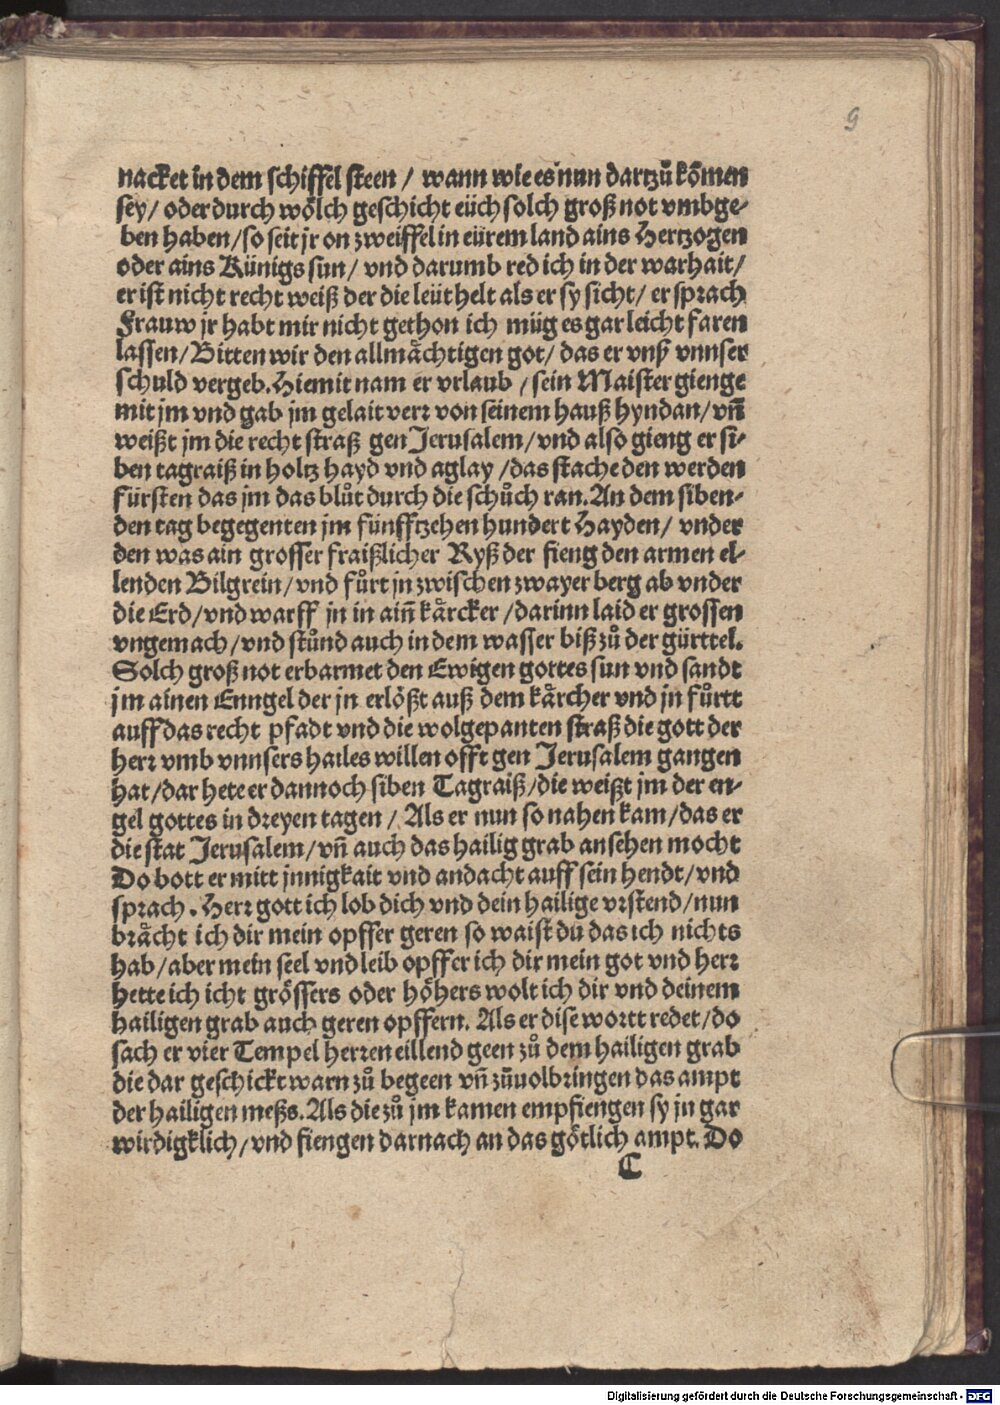 9
nacket in dem schiffel steen / wann wie es nun dartzů kōmen
sey / oder durch wölch geschicht eüch solch groß not vmbge-
ben haben / so seit jr on zweiffel in eürem land ains Hertzogen
oder ains Künigs sun / vnd darumb red ich in der warhait /
er ist nicht recht weiß der die leüt helt als er sy sicht / er sprach
Frauw jr habt mir nicht gethon ich müg es gar leicht faren
lassen / Bitten wir den allmächtigen got / das er vnß vnnser
schuld vergeb. Hiemit nam er vrlaub / sein Maister gienge
mit jm vnd gab jm gelait verr von seinem hauß hyndan / vn̄
weißt jm die recht straß gen Jerusalem / vnd also gieng er si-
ben tagraiß in holtz hayd vnd aglay / das stache den werden
fürsten das jm das blůt durch die schůch ran. An dem siben-
den tag begegenten jm fünfftzehen hundert Hayden / vnder
den was ain grosser fraißlicher Ryß der fieng den armen el-
lenden Bilgrein / vnd fůrt jn zwischen zwayer berg ab vnder
die Erd / vnd warff jn in ain̄ kärcker / darinn laid er grossen
vngemach / vnd stůnd auch in dem wasser biß zů der gürttel.
Solch groß not erbarmet den Ewigen gottes sun vnd sandt
jm ainen Enngel der jn erlößt auß dem kärcher vnd jn fůrtt
auff das recht pfadt vnd die wolgepanten straß die gott der
herr vmb vnnsers hailes willen offt gen Jerusalem gangen
hat / dar hete er dannoch siben Tagraiß / die weißt jm der en-
gel gottes in dreyen tagen / Als er nun so nahen kam / das er
die stat Jerusalem / vn̄ auch das hailig grab ansehen mocht
Do bott er mitt jnnigkait vnd andacht auff sein hendt / vnd
sprach . Herr gott ich lob dich vnd dein hailige vrstend / nun
brächt ich dir mein opffer geren so waist du das ich nichts
hab / aber mein seel vnd leib opffer ich dir mein got vnd herr
hette ich icht grössers oder höhers wolt ich dir vnd deinem
hailigen grab auch geren opffern. Als er dise wortt redet / do
sach er vier Tempel herren eillend geen zů dem hailigen grab
die dar geschickt warn zů begeen vn̄ zůuolbringen das ampt
der hailigen meßs. Als die zů jm kamen empfiengen sy jn gar
wirdigklich / vnd fiengen darnach an das götlich ampt. Do
C
Digitalisierung gefördert durch die Deutsche Forschungsgemeinschaft - DFG